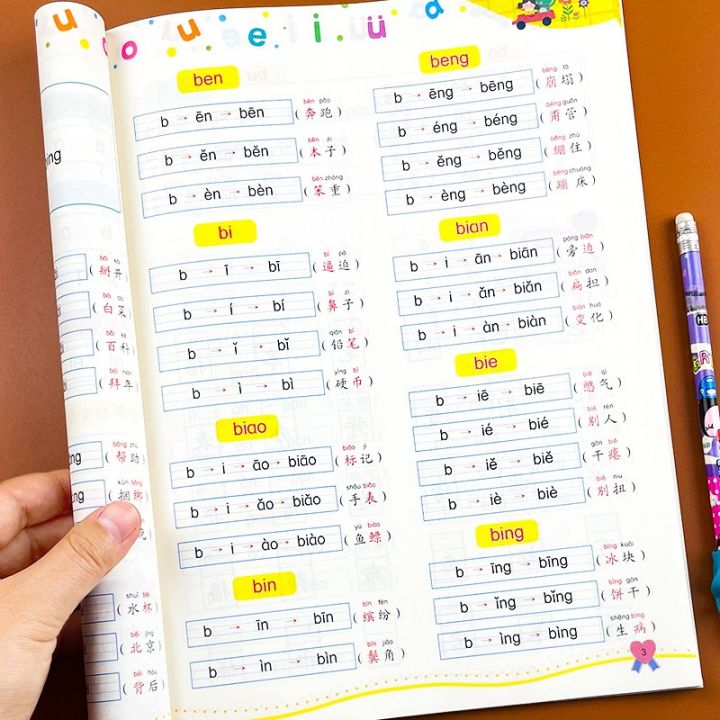 u o u e e i i ü a
ben
bēn pǎo
b → ēn → bēn (奔跑)
běn zi
b → ěn → běn (本子)
bèn zhòng
b → èn → bèn (笨重)
bi
bī pò
b → ī → bī (逼迫)
bí zi
b → í → bí (鼻子)
qiān bǐ
b → ǐ → bǐ (铅笔)
yìng bì
b → ì → bì (硬币)
biao
biāo jì
b → i → āo → biāo (标记)
shǒu biǎo
b → i → ǎo → biǎo (手表)
yú biào
b → i → ào → biào (鱼鳔)
bin
bīn fēn
b → īn → bīn (缤纷)
bìn jiǎo
b → ìn → bìn (鬓角)
beng
bēng tā
b → ēng → bēng (崩塌)
béng guǎn
b → éng → béng (甭管)
běng zhù
b → ěng → běng (绷住)
bèng chuáng
b → èng → bèng (蹦床)
bian
páng biān
b → i → ān → biān (旁边)
biǎn dan
b → i → ǎn → biǎn (扁担)
biàn huà
b → i → àn → biàn (变化)
bie
biē qì
b → iē → biē (憋气)
bié rén
b → ié → bié (别人)
gān biě
b → iě → biě (干瘪)
biè niu
b → iè → biè (别扭)
bing
bīng kuài
b → īng → bīng (冰块)
bǐng gān
b → ǐng → bǐng (饼干)
shēng bìng
b → ìng → bìng (生病)
3
(掰开)
(白菜)
(百科)
(拜年)
(帮助)
(捆绑)
(水杯)
(北京)
(背后)
HB